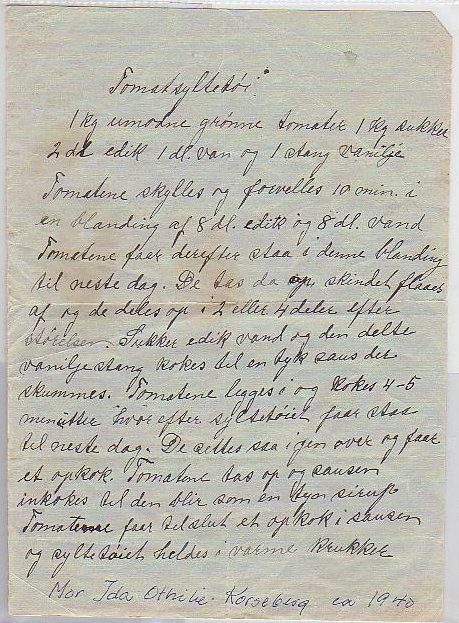 Tomatsyltetøi.
1 kg umodne grønne tomater 1 kg sukker
2 dl edik 1 dl. van og 1 stang vanilje
Tomatene skylles og forvelles 10 min. i
en blanding af 8 dl. edik og 8 dl. vand
Tomatene faar derefter staa i denne blanding
til neste dag. De tas da op skindet flaaes
af og de deles op i 2 eller 4 deler efter
størelsen. Sukker edik vand og den delte
vanilje stang kokes til en tyk saus der
skummes. Tomatene legges i og kokes 4-5
minutter hvor efter syltetøiet faar staa
til neste dag. De settes saa igen over og faar
et opkok. Tomatene tas op og sausen
inkokes til den blir som en tyn sirup
Tomatene faar tilslut et opkok i sausen
og syltetøiet heldes i varme krukker
Mor Ida Othilie Korseberg ca 1940